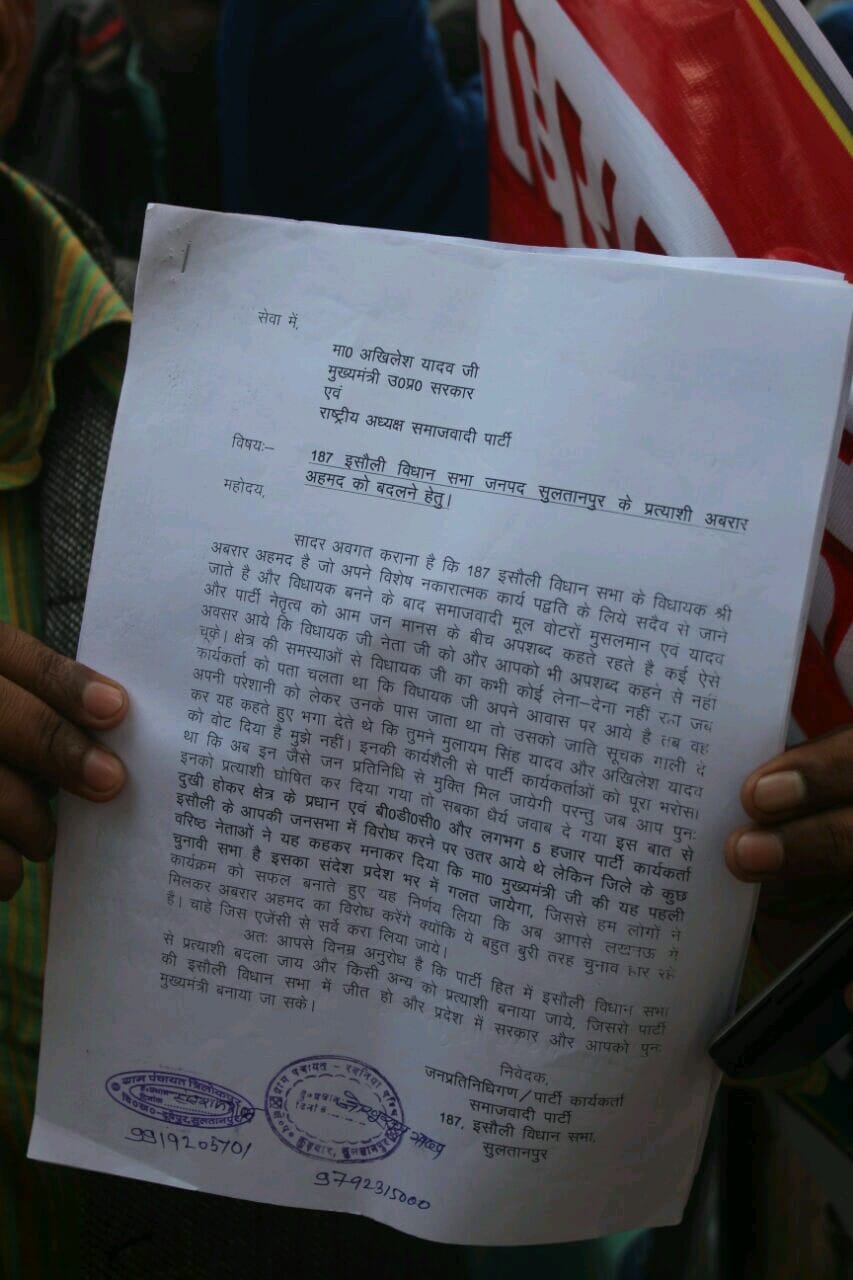 सेवा में,
मा0 अखिलेश यादव जी
मुख्यमंत्री उ0प्र0 सरकार
एवं
राष्ट्रीय अध्यक्ष समाजवादी पार्टी
विषयः–
187 इसौली विधान सभा जनपद सुलतानपुर के प्रत्याशी अबरार
अहमद को बदलने हेतु।
महोदय,
सादर अवगत कराना है कि 187 इसौली विधान सभा के विधायक श्री
अबरार अहमद है जो अपने विशेष नकारात्मक कार्य पद्वति के लिये सदैव से जाने
जाते है और विधायक बनने के बाद समाजवादी मूल वोटरों मुसलमान एवं यादव
और पार्टी नेतृत्व को आम जन मानस के बीच अपशब्द कहते रहते है कई ऐसे
अवसर आये कि विधायक जी नेता जी को और आपको भी अपशब्द कहने से नहीं
चूके। क्षेत्र की समस्याओं से विधायक जी का कभी कोई लेना–देना नहीं रहा जब
कार्यकर्ता को पता चलता था कि विधायक जी अपने आवास पर आये है तब वह
अपनी परेशानी को लेकर उनके पास जाता था तो उसको जाति सूचक गाली दे
कर यह कहते हुए भगा देते थे कि तुमने मुलायम सिंह यादव और अखिलेश यादव
को वोट दिया है मुझे नहीं। इनकी कार्यशैली से पार्टी कार्यकर्ताओं को पूरा भरोसा
था कि अब इन जैसे जन प्रतिनिधि से मुक्ति मिल जायेगी परन्तु जब आप पुनः
इनको प्रत्याशी घोषित कर दिया गया तो सबका धैर्य जवाब दे गया इस बात से
दुखी होकर क्षेत्र के प्रधान एवं बी0डी0सी0 और लगभग 5 हजार पार्टी कार्यकर्ता
इसौली के आपकी जनसभा में विरोध करने पर उतर आये थे लेकिन जिले के कुछ
वरिष्ठ नेताओं ने यह कहकर मनाकर दिया कि मा0 मुख्यमंत्री जी की यह पहली
चुनावी सभा है इसका संदेश प्रदेश भर में गलत जायेगा, जिससे हम लोगों ने
कार्यक्रम को सफल बनाते हुए यह निर्णय लिया कि अब आपसे लखनऊ में
मिलकर अबरार अहमद का विरोध करेंगे क्योंकि ये बहुत बुरी तरह चुनाव हार रहे
है। चाहे जिस एजेंसी से सर्वे करा लिया जाये।
अतः आपसे विनम्र अनुरोध है कि पार्टी हित में इसौली विधान सभा
से प्रत्याशी बदला जाय और किसी अन्य को प्रत्याशी बनाया जाये, जिससे पार्टी
की इसौली विधान सभा में जीत हो और प्रदेश में सरकार और आपको पुनः
मुख्यमंत्री बनाया जा सके।
निवेदक,
जनप्रतिनिधिगण/पार्टी कार्यकर्ता
समाजवादी पार्टी
187, इसौली विधान सभा,
सुलतानपुर
ग्राम पंचायत
सुलतानपुर
9919205701
ग्राम पंचायत
कुड़वार, सुलतानपुर
9792315000